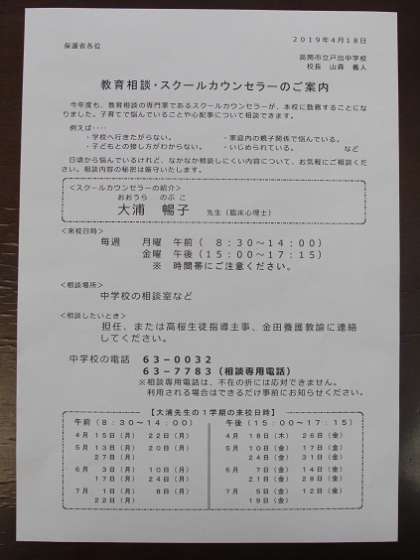 2019年4月18日
保護者各位
高岡市立戸出中学校
校長 山森 義人
教育相談・スクールカウンセラーのご案内
今年度も、教育相談の専門家であるスクールカウンセラーが、本校に勤務することにな
りました。子育てで悩んでいることや心配事について相談できます。
例えば・・・・
・学校へ行きたがらない。 ・家庭内の親子関係で悩んでいる。
・子どもとの接し方がわからない。 ・いじめられている。 など
日頃から悩んでいるけれど、なかなか相談しにくい内容について、お気軽にご相談くださ
い。相談内容の秘密は厳守いたします。
<スクールカウンセラーの紹介>
おおうら のぶこ
大浦 暢子 先生(臨床心理士)
<来校日時>
毎週 月曜 午前( 8:30~14:00)
金曜 午後(15:00~17:15)
※ 時間帯にご注意ください。
<相談場所>
中学校の相談室など
<相談したいとき>
担任、または高桜生徒指導主事、金田養護教諭に連絡
してください。
中学校の電話 63-0032
63-7783(相談専用電話)
※相談専用電話は、不在の折には応対できません。
利用される場合はできるだけ事前にお知らせください。
【大浦先生の1学期の来校日時】
午前(8:30~14:00) 午後(15:00~17:15)
4月 15日(月) 22日(月) 4月 18日(木) 26日(金)
5月 13日(月) 20日(月) 5月 10日(金) 17日(金)
27日(月) 24日(金) 31日(金)
6月 3日(月) 10日(月) 6月 7日(金) 14日(金)
17日(月) 24日(月) 21日(金) 28日(金)
7月 1日(月) 8日(月) 7月 5日(金) 12日(金)
22日(月) 19日(金)